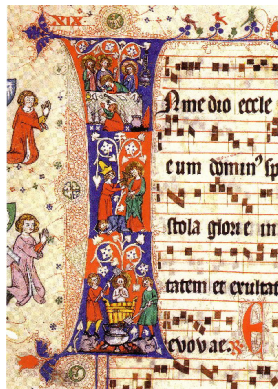 XIX
In me dio eccle
eum domin⁹ sp
stola glorie in
tatem et exultat
evovae. R E